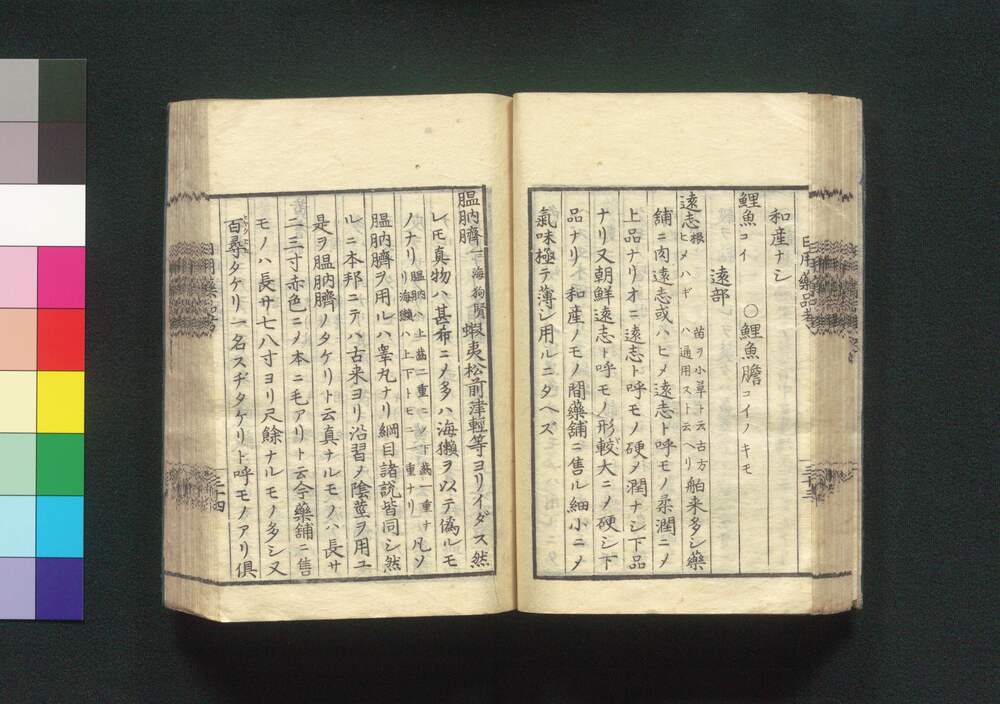 和産ナシ
鯉魚コイ　○鯉魚膽コイノキモ
遠部
遠志根ヒメハギ 苗ヲ小草ト云古方ハ通用スト云ヘリ舶来多シ藥
舗ニ肉遠志或ハヒメ遠志ト呼モノ柔潤ニメ
上品ナリオニ遠志ト呼モノ硬メ潤ナシ下品
ナリ又朝鮮遠志ト呼モノ形較大ニメ硬シ下
品ナリ 和産ノモノ間藥舗ニ售ル細小ニメ
氣味極テ薄シ用ルニタヘズ
日用藥品考
三十三
膃肭臍一海狗腎蝦夷松前津輕等ヨリイダス然
レ𪜈真物ハ甚布ニメ多ハ海獺ヲ以テ偽ルモ
ノナリ膃肭ハ上齒二重ニメ下齒一重ナリ海獺ハ上下トモニ一重ナリ凡ソ
膃肭臍ヲ用ルハ睾丸ナリ綱目諸説皆同シ然
ルニ本邦ニテハ古来ヨリ沿習メ陰莖ヲ用ユ
是ヲ膃肭臍ノタケリト云真ナルモノハ長サ
二三寸赤色ニメ本ニ毛アリト云今藥舗ニ售
モノハ長サ七八寸ヨリ尺餘ナルモノ多シ又
百尋タケリ一名スヂタケリト呼モノアリ俱
日用藥品考
三十四